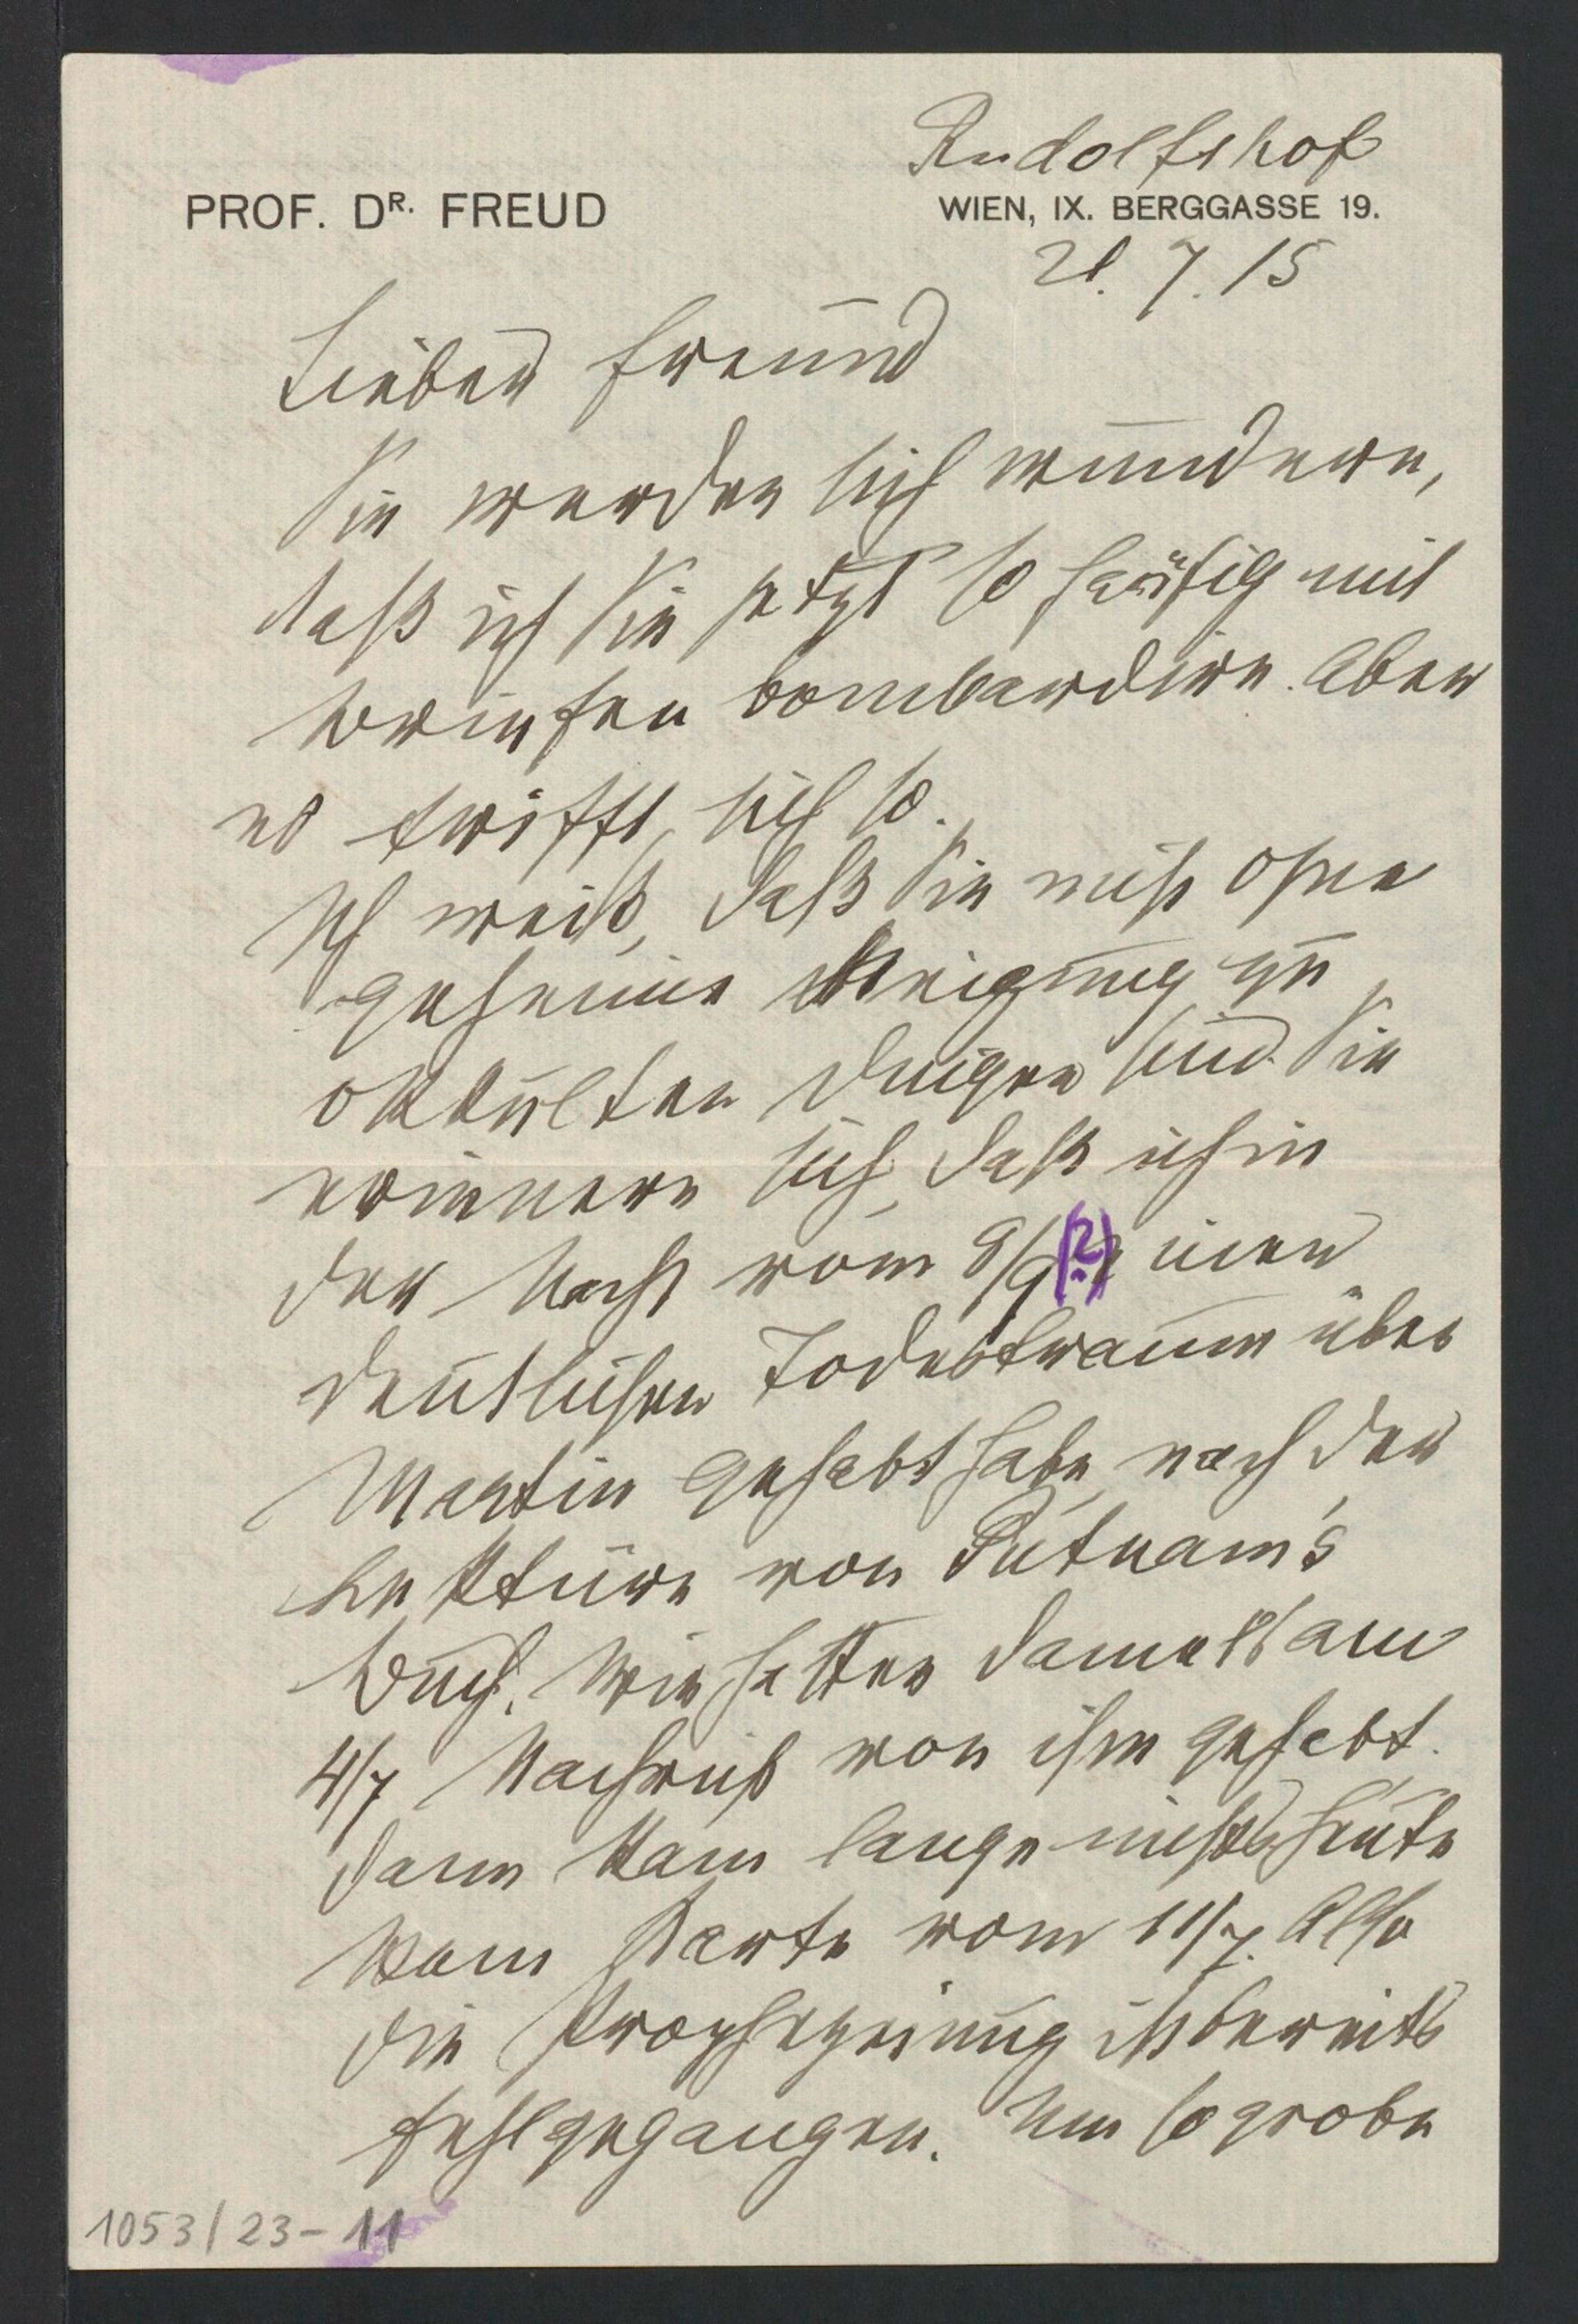 Rudolfshof
PROF. DR. FREUD
WIEN, IX. BERGGASSE 19.
21. 7. 15
Lieber Freund
Sie werden sich wundern,
daß ich Sie jetzt so häufig mit
Briefen bombardire. Aber
es trifft sich so.
Ich weiß, daß Sie nicht ohne
geheime Neigung zu
okkulten Dingen sind. Sie
erinnern sich, daß ich in
der Nacht vom 8/9 (?) einen
deutlichen Todestraum über
Martin gehabt habe nach der
Lektüre von Putnam's
Buch. Wir hatten damals am
4/7 Nachricht von ihm gehabt.
Dann kam lange nichts, heute
kam Karte vom 11/7. Also
die Prophezeiung ist bereits
fehlgegangen. Um so grobe
1053/23-11